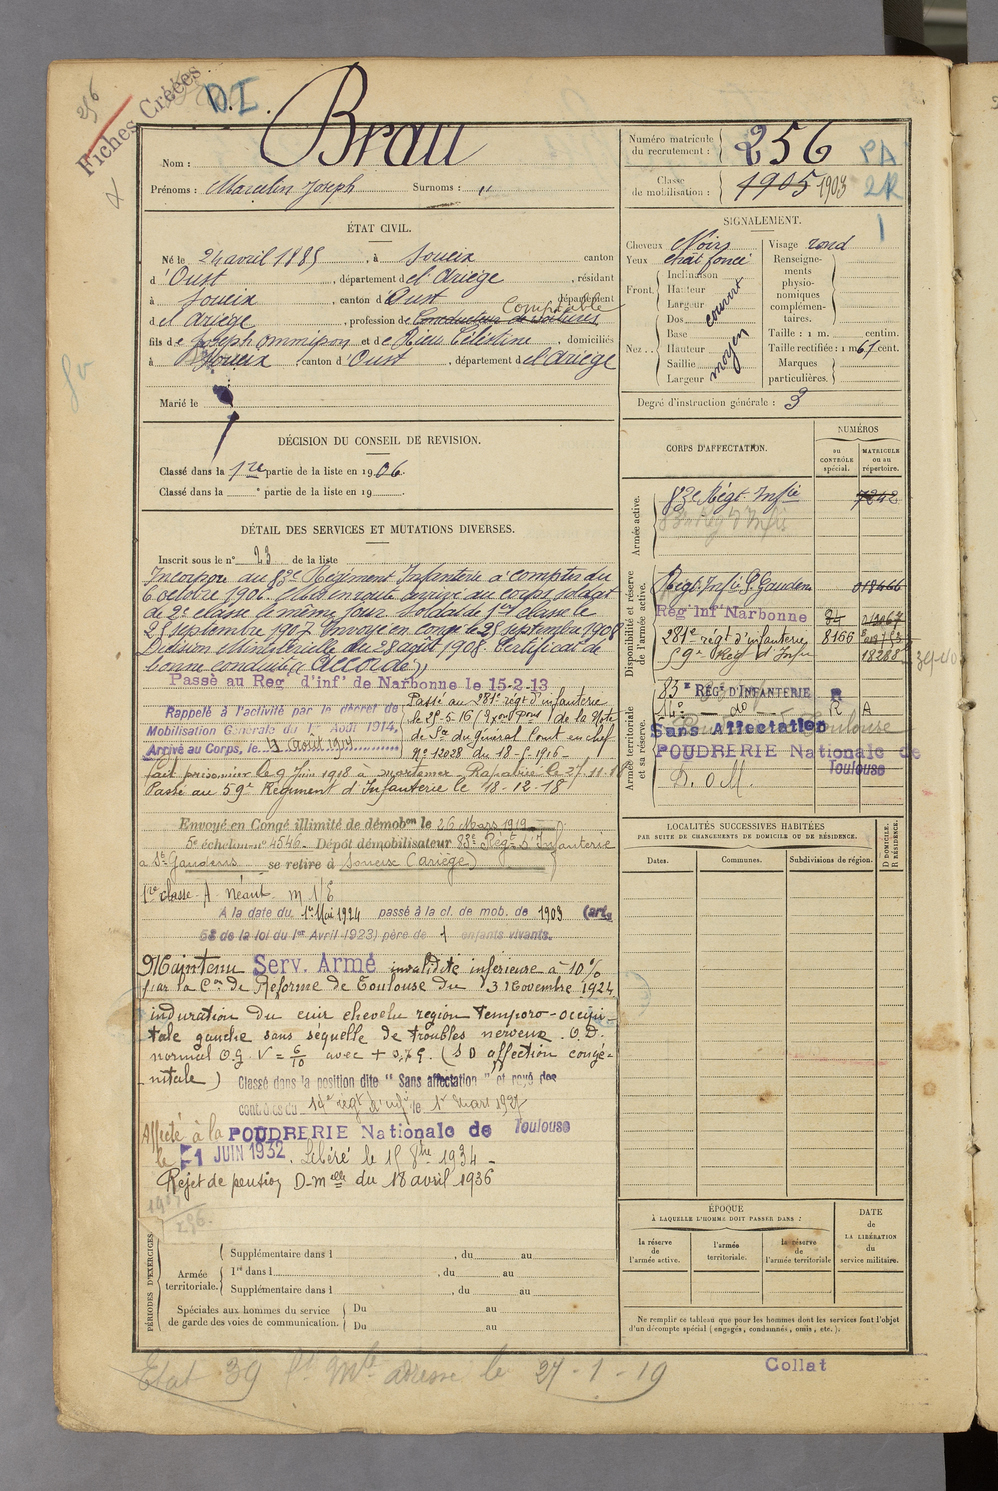 256
Fiches Créées
DI
Nom : Brau
Prénoms : Marcelin Joseph Surnoms : "
Numéro matricule du recrutement : 256
PA
Classe de mobilisation : 1905 1903
2R
1
ÉTAT CIVIL.
Né le 24 avril 1885, à Soueix canton
d'Oust, département de l'Ariège, résidant
à Soueix, canton d'Oust département
de l'Ariège, profession de Conducteur de voitures Comptable
fils de Joseph Omnipon et de Rieu Célestine, domiciliés
à Soueix, canton d'Oust, département de l'Ariège
Marié le
SIGNALEMENT.
Cheveux Noirs
Yeux chat foncé
Front. Inclinaison
Hauteur
Largeur
couvert
Nez . . Dos
Base
Hauteur
Saillie
Largeur
moyen
Visage rond
Renseignements physionomiques complémentaires.
Taille : 1 m. centim.
Taille rectifiée : 1 m 67 cent.
Marques particulières.
Degré d'instruction générale : 3
DÉCISION DU CONSEIL DE REVISION.
Classé dans la 1re partie de la liste en 1906.
Classé dans la e partie de la liste en 19
DÉTAIL DES SERVICES ET MUTATIONS DIVERSES.
Inscrit sous le n° 23 de la liste
Incorporé au 83e Régiment Infanterie à compter du
6 octobre 1906. arrivé au corps, soldat
de 2e classe le même jour. Soldat de 1re classe le
25 septembre 1907. Envoyé en congé le 25 septembre 1908
Décision Ministérielle du 28 août 1908. Certificat de
bonne conduite "Accordé"
Passé au Reg t d'inf ie de Narbonne le 15-2-13
Rappelé à l'activité par le décret de
Mobilisation Générale du 1er Août 1914,
Arrivé au Corps, le 4 Août 1914
Passé au 281e régt d'infanterie
le 25-5-16 de la Note
de Sce du Général Comt en chef
N° 12028 du 18-5-1916 -
fait prisonnier le 9 Juin 1918 à Mortemer - Rapatrié le 27.11.18
Passé au 59e Régiment d'Infanterie le 18-12-18
Envoyé en Congé illimité de démob on le 26 Mars 1919
5e échelon n° 4546. Dépôt démobilisateur 83e Régt d'Infanterie
à St Gaudens se retire à Soueix (Ariège)
1re classe - A - Néant. m 1/E
A la date du 1er Mai 1924 passé à la cl. de mob. de 1903 (art.
58 de la loi du 1er Avril 1923) père de 1 enfants vivants.
Maintenu Serv. Armé invalidité inférieure à 10 %
par la Con de Réforme de Toulouse du 3 Novembre 1924
induration du cuir chevelu région temporo-occipi-
tale gauche sans séquelle de troubles nerveux. O.D.
normal O.G. V = 6/10 avec + 0,75. (S D affection congé-
nitale)
Classé dans la position dite " Sans affectation " et rayé des
contrôles du 14e régt d'infie le 1er mars 1927
Affecté à la POUDRERIE Nationale de Toulouse
le -1 JUIN 1932. Libéré le 15 8bre 1934 -
Rejet de pension D-mlle du 18 avril 1936
1903
256.
CORPS D'AFFECTATION.
NUMÉROS
au CONTRÔLE spécial.
MATRICULE ou au répertoire.
Armée active.
83e Régt Infie 7242
Disponibilité et réserve de l'armée active.
Régt Infie St Gaudens 018466
Rég t Inf ie Narbonne 34
281e régt d'infanterie 8166
59e Rég d'Infie 18288
Armée territoriale et sa réserve.
83e RÉG t D'INFANTERIE R
14e - do - R A
Sans Affectation
POUDRERIE Nationale de
Toulouse
D. o M.
LOCALITÉS SUCCESSIVES HABITÉES
PAR SUITE DE CHANGEMENTS DE DOMICILE OU DE RÉSIDENCE.
D DOMICILE. R RÉSIDENCE.
Dates. Communes. Subdivisions de région.
ÉPOQUE
À LAQUELLE L'HOMME DOIT PASSER DANS :
la réserve de l'armée active.
l'armée territoriale.
la réserve de l'armée territoriale
DATE de LA LIBÉRATION du service militaire.
Ne remplir ce tableau que pour les hommes dont les services font l'objet
d'un décompte spécial (engagés, condamnés, omis, etc.).
PÉRIODES D'EXERCICES
Armée territoriale.
Supplémentaire dans l , du au
1re dans l , du au
Supplémentaire dans l , du au
Spéciales aux hommes du service
de garde des voies de communication.
Du au
Du au
Etat 39 adressé le 27-1-19
Collat